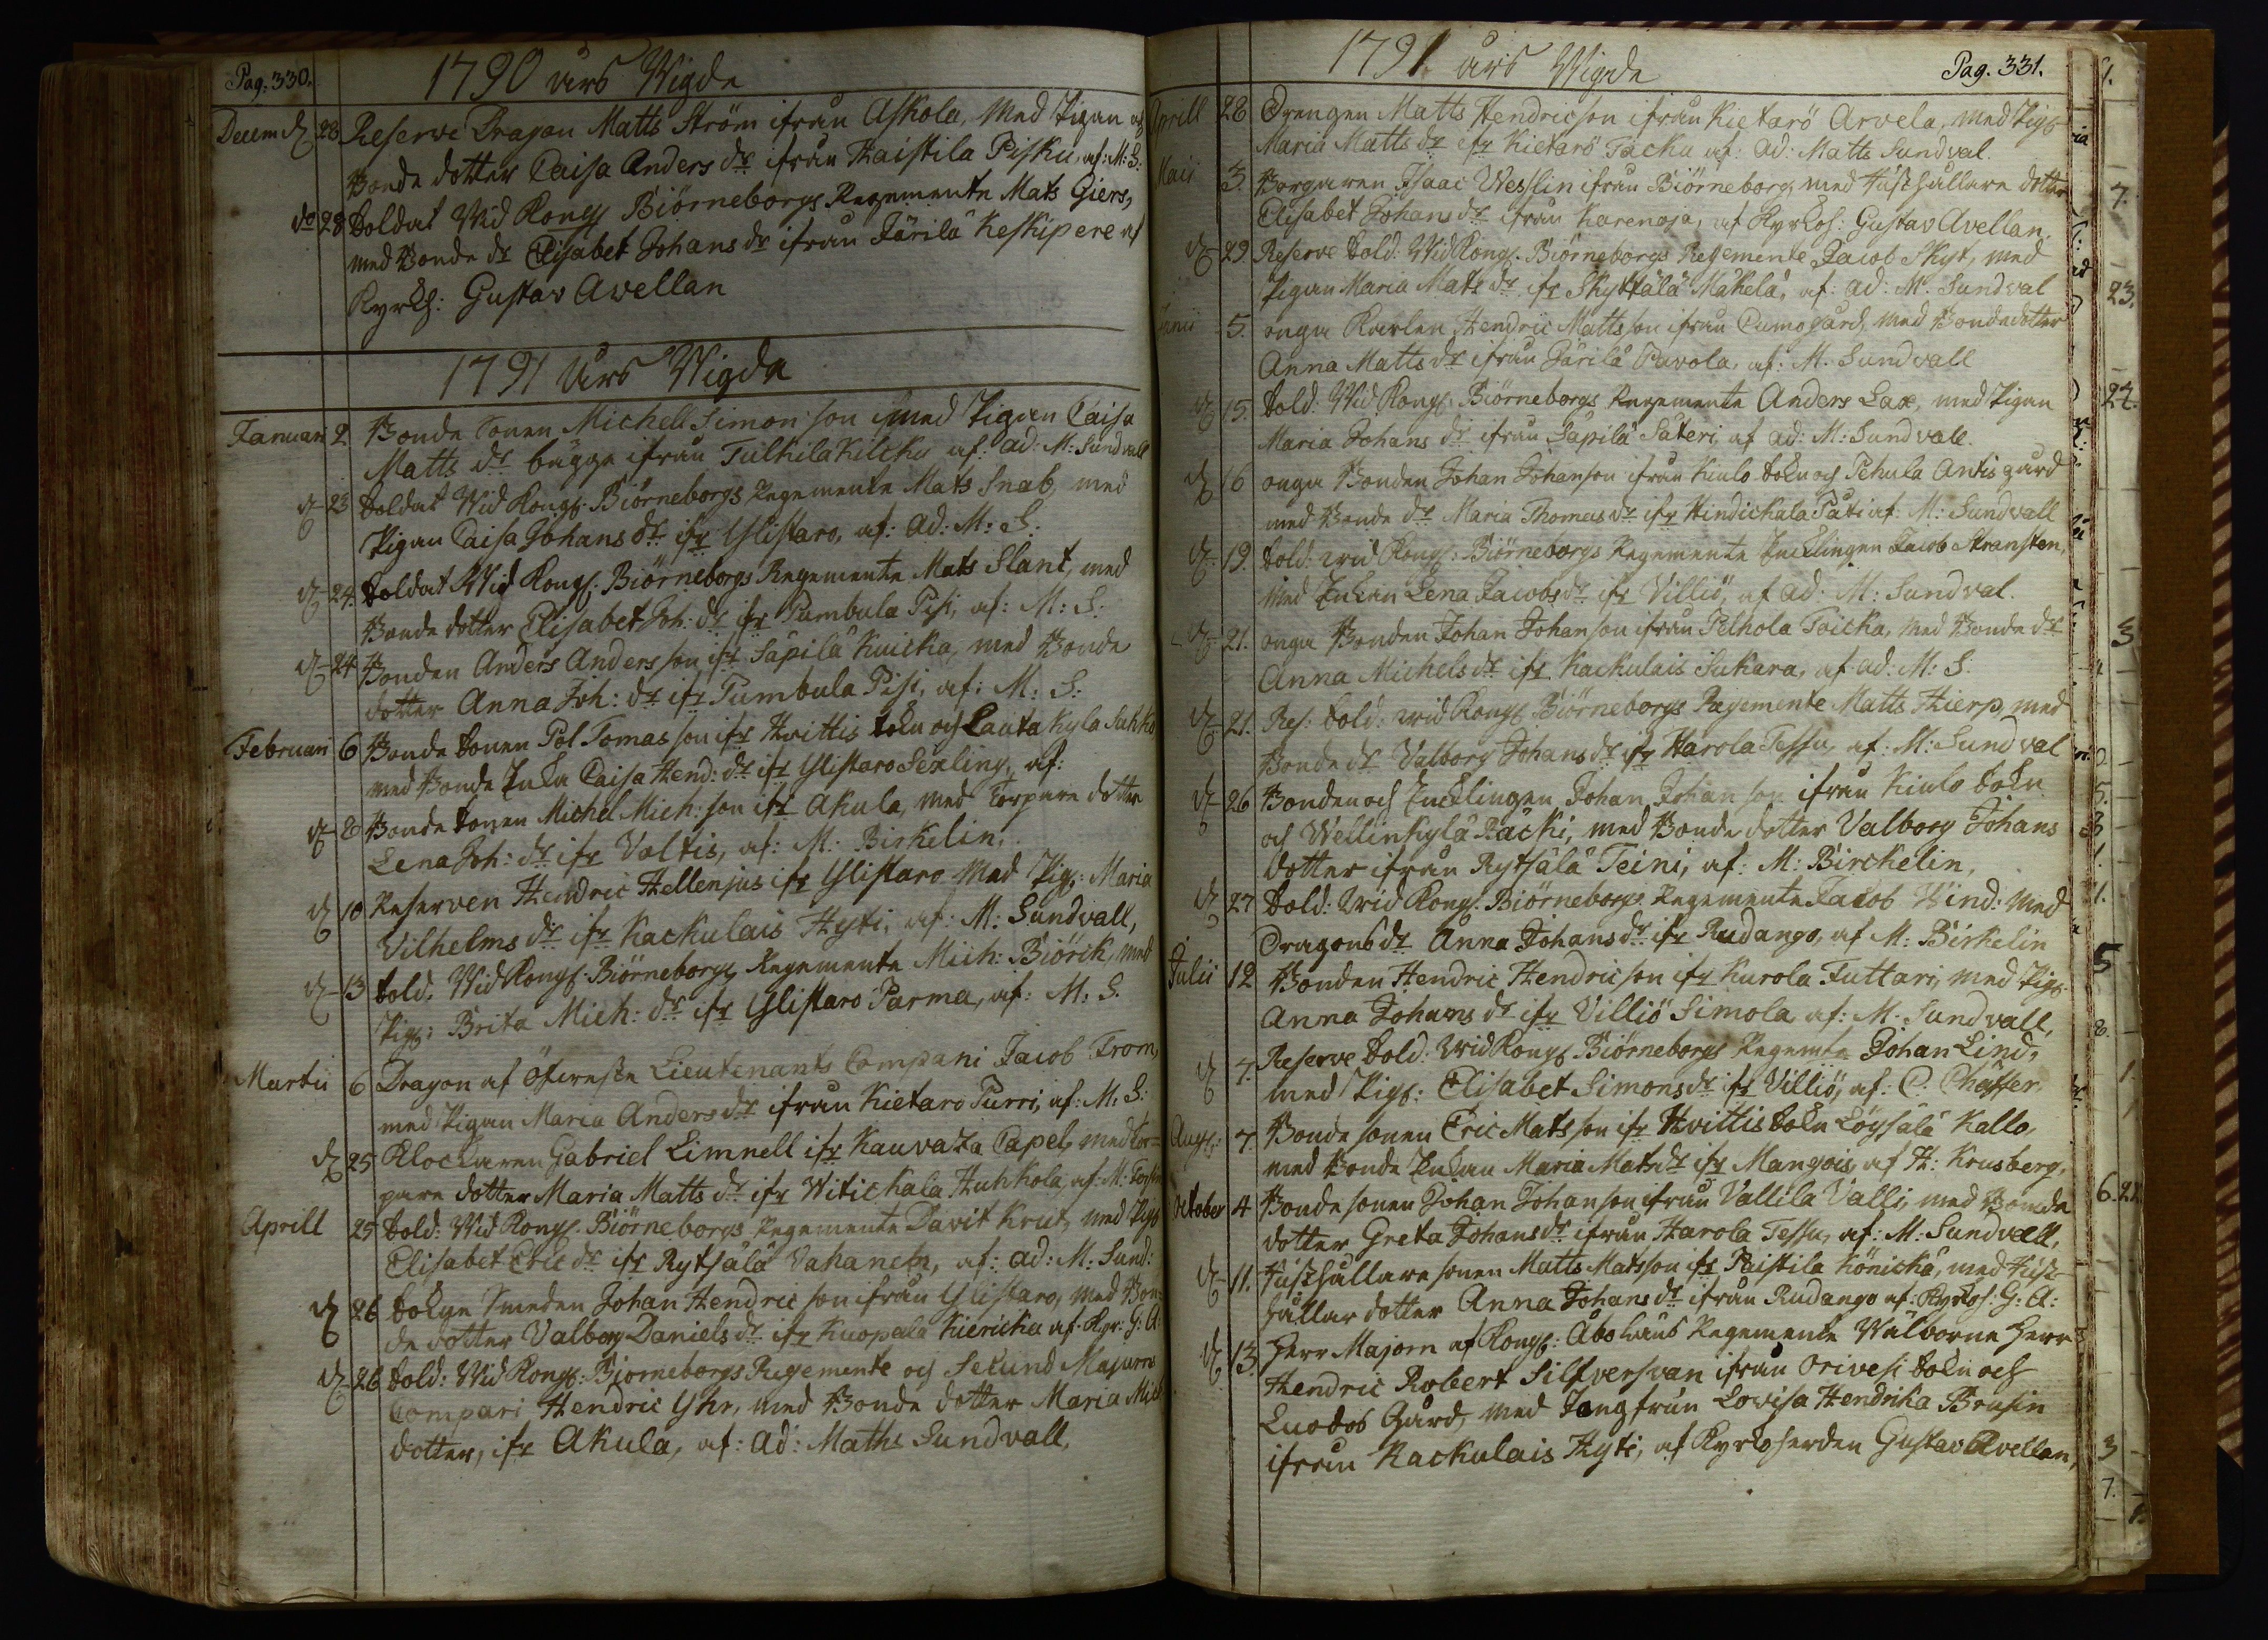 Pag: 330.
1790 års Wigde
Decem d 28 Reserve Dragon Matts Ström ifrån Askola, Med Pigan och
Bonde dotter Caisa Anders dr ifrån Haistila Pisku, af: M: S:
do 28 Soldat Wid Kongs Biörneborgs Regemente Mats Giers,
med Bonde dr Elisabet Johans dr ifrån Järilä Keskipere af
Kyrkh: Gustav Avellan
1791 Års Wigde
Januari 2 Bonde Sonen Michell Simon son med Pigan Caisa
Matts dr bägge ifrån Tulkila Kilcku af: ad: M: Sundvall
d 23 Soldat Wid Kongs. Biörneborgs Regemente Mats Snab, med
Pigan Caisa Johans dr ifr Ylistaro, af: Ad: M: S:
d 24. Soldat Wid Kongs: Biörneborgs Regemente Mats Slant, med
Bonde dotter Elisabet Joh: dr ifr Pumbula Pisi, af: M: S:
d 24 Bonden Anders Anders son ifr Säpilä Knicka, med Bonde
dotter Anna Joh: dr ifr Pumbula Pisi, af: M: S:
Februari 6 Bonde Sonen Pol Tomas son ifr Hvittis Sokn och Lautakyla Suhko
med Bonde Enka Caisa Hend: dr ifr Ylistaro Sexling, af:
d 8 Bonde Sonen Michel Mich: son ifr Akula, med Torpare dotter
Lena Joh: dr ifr Voltis, af: M: Birkelin,
d 10 Reserven Hendric Hellenjus ifr Ylistaro Med Pig: Maria
Vilhelms dr ifr Kackulais Hyti, af: M: Sundvall,
d 13 Sold. Wid Kongs. Biörneborgs Regemente Mich: Biörik, med
Pig: Brita Mich: dr ifr Ylistaro Parma, af: M: S.
Martii 6 Dragon af Öfverste Lieutenants Compani Jacob From,
med Pigan Maria Anders dr ifrån Kietaro Purri, af: M: S:
d 25 Klockaren Gabriel Limnell ifr Kauvatza Capel, med Tor=
pare dotter Maria Matts dr ifr Witickala Huhkola, af: M:
Aprill 25 Sold: Wid Kongs. Biörneborgs Regemente Davit Krut, med Pig
Elisabet Eric dr ifr Rytsälä Vahanen, af: ad: M: Sund:
d 26 Sokne Smeden Johan Hendric son ifrån Ylistaro, med Bon=
de dotter Valborg Daniels dr ifr Kuopala Kiericka af: Kyr: G: A:
d 26 Sold: Wid Kongs: Bjorneborgs Regemente och Secund Majorns
Compani Hendric Yhr, med Bonde dotter Maria Mich
dotter, ifr Akula, af: ad: Maths Sundvall,
1791 års Wigde
Pag. 331.
Aprill 28 Drengen Matts Hendricson ifrån Kietarö Arvela, med Pig
Maria Matts dr ifr Kietarö Packu af: ad: Matts Sundval.
Maii 3. Borgaren Isaac Wesslin ifrån Biörneborg, med Hushållare dotter
Elisabet Johans dr ifrån Karenoja, af Kyrkoh: Gustav Avellan.
d 29 Reserve Sold: Wid Kongs. Biörneborgs Regemente Jacob Skyt, med
Pigan Maria Mats dr ifr Skyttälä Mäkelä, af: ad: M. Sundval
Junii 5. Unga Karlen Hendric Matts son ifrån Cumogård, med Bonde dotter
Anna Matts dr ifrån Järilä Pavola, af: M. Sundvall
d 15. Sold: Wid Kongs: Biörneborgs Regemente Anders Lax, med Pigan
Maria Johans dr ifrån Säpilä Säteri, af ad: M: Sundvall.
d 16 unga Bonden Johan Johanson ifrån Kiulo Sokn och Pehula Antis gård
med Bonde dr Maria Thomas dr ifr Hindickala Päti af: M: Sundvall
d 19. Sold: wid Kongs: Biörneborgs Regemente Encklingen Jacob Transten,
med Enkan Lena Jacobs dr ifr Villiö, af ad: M: Sundval.
d 21. unga Bonden Johan Johanson ifrån Pelhola Toicka, med Bonde dr
Anna Michels dr ifr Kackulais Sukara, af ad: M: S:
d 21. Res: Sold: wid Kongs Biörneborgs Regemente Matts Hierp, med
Bonde dr Valborg Johans dr ifr Harola Tessu, af: M: Sundval
d 26 Bonden och Encklingen Johan Johan son ifrån Kiulo Sokn
och Wellinkylä Päcki, med Bonde dotter Valborg Johans
dotter ifrån Rytsälä Teini, af: M: Birckelin,
d 27 Sold: Wid Kongs. Biörneborgs Regemente Jacob Wind: med
Dragons dr Anna Johans dr ifr Rudango, af M: Birkelin
Julii 12 Bonden Hendric Hendricson ifr Karola Juttari, med Pig
Anna Johans dr ifr Villiö Simola, af: M. Sundvall,
d 4. Reserve Sold: wid Kongs Biörneborgs Regemte Johan Lind,
med Pig: Elisabet Simons dr ifr Villiö, af: C. Chäffer
Augs: 7. Bonde sonen Eric Mats son ifr Hvittis Sokn Löysälä Kallo,
med Bonde Enkan Maria Mats dr ifr Mangois, af H: Krusberg,
October 4 Bonde sonen Johan Johanson ifrån Vallila Valli, med Bonde
dotter Greta Johans dr ifrån Harola Tessu, af: M: Sundvall,
d 11. Hushållare sonen Matts Matsson ifr Paistila Könickä, med Hus=
hållar dotter Anna Johans dr ifrån Rudango af: Kyrkoh: G: A:
d 13. Herr Majorn af Kongs: Åbo Läns Regemente Wälborne Herr
Hendric Robert Silfversvan ifrån Orivesi Sokn och
Luodos Gård, med Jungfrun Lovisa Hendrika Brusin
ifrån Kackulais Hyti, af Kyrkoherden Gustav Avellan,